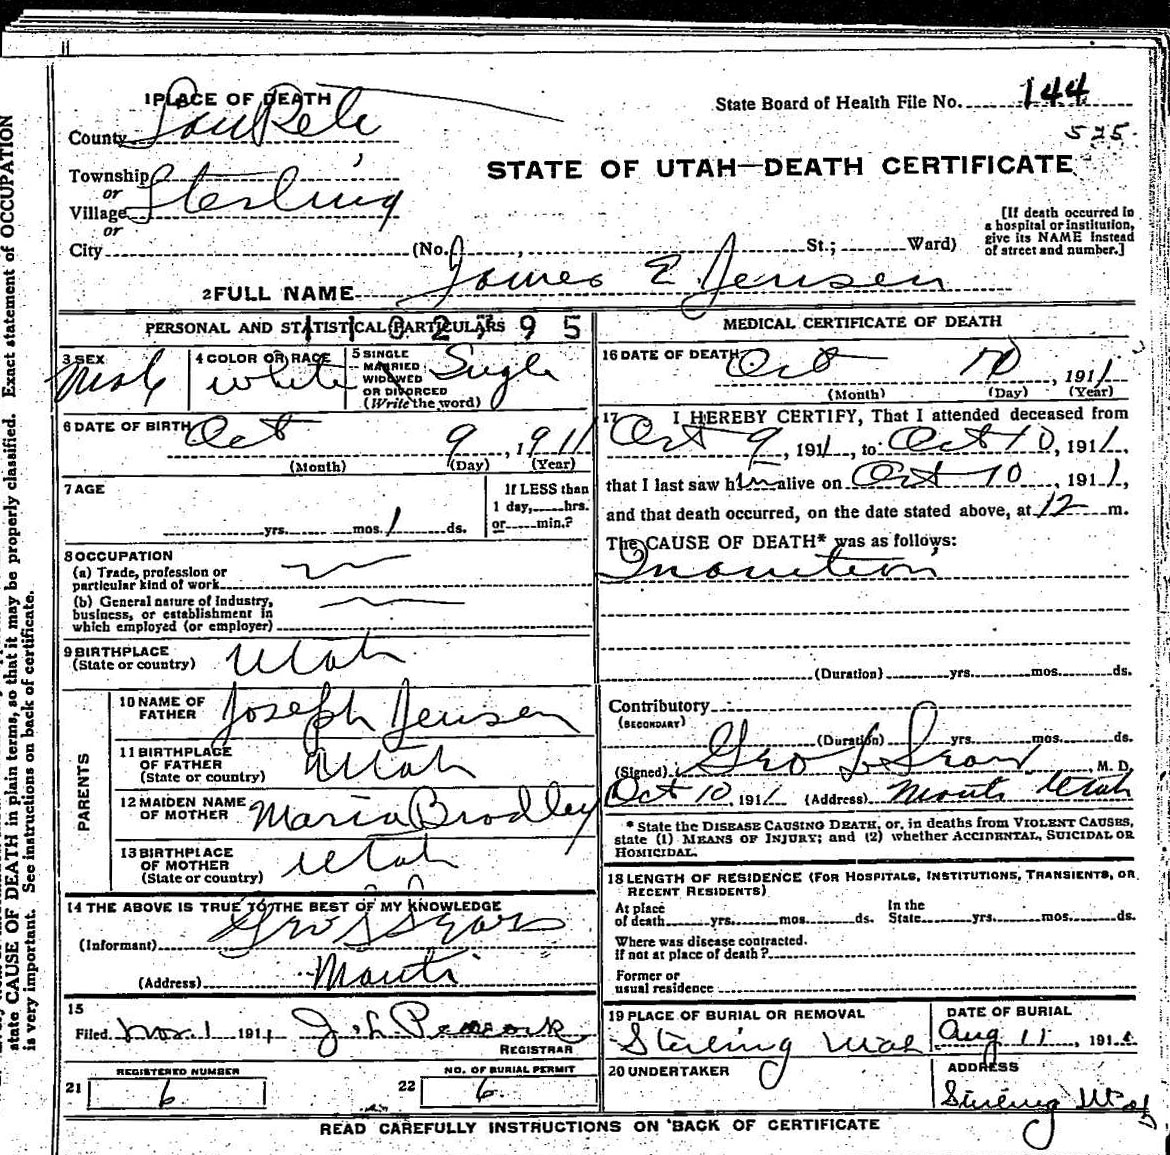 11
1 PLACE OF DEATH
State Board of Health File No. 144
525
County SanPete
STATE OF UTAH—DEATH CERTIFICATE
Township
or
Village Sterling
or
City (No. , St.; Ward)
[If death occurred in
a hospital or institution,
give its NAME instead
of street and number.]
2 FULL NAME James E Jensen
PERSONAL AND STATISTICAL PARTICULARS
1102795
3 SEX Male
4 COLOR OR RACE White
5 SINGLE
MARRIED
WIDOWED
OR DIVORCED
(Write the word) Single
6 DATE OF BIRTH Oct 9, 1911
(Month) (Day) (Year)
7 AGE
yrs. mos. 1 ds.
If LESS than
1 day, hrs.
or min.?
8 OCCUPATION
(a) Trade, profession or
particular kind of work
(b) General nature of industry,
business, or establishment in
which employed (or employer)
9 BIRTHPLACE
(State or country) Utah
PARENTS
10 NAME OF
FATHER Joseph Jensen
11 BIRTHPLACE
OF FATHER
(State or country) Utah
12 MAIDEN NAME
OF MOTHER Maria Bradley
13 BIRTHPLACE
OF MOTHER
(State or country) Utah
14 THE ABOVE IS TRUE TO THE BEST OF MY KNOWLEDGE
(Informant) Geo L Sears
(Address) Manti
15
Filed Nov. 1 1911 J. L. Peacock
REGISTRAR
REGISTERED NUMBER
21 6
NO. OF BURIAL PERMIT
22 6
MEDICAL CERTIFICATE OF DEATH
16 DATE OF DEATH Oct 10, 1911
(Month) (Day) (Year)
17 I HEREBY CERTIFY, That I attended deceased from
Oct 9, 1911, to Oct 10, 1911,
that I last saw him alive on Oct 10, 1911,
and that death occurred, on the date stated above, at 12 m.
The CAUSE OF DEATH* was as follows:
Inanition
(Duration) yrs. mos. ds.
Contributory
(SECONDARY)
(Duration) yrs. mos. ds.
(Signed) Geo L Sears, M. D.
Oct 10, 1911 (Address) Manti Utah
* State the DISEASE CAUSING DEATH, or, in deaths from VIOLENT CAUSES,
state (1) MEANS OF INJURY; and (2) whether ACCIDENTAL, SUICIDAL OR
HOMICIDAL.
18 LENGTH OF RESIDENCE (FOR HOSPITALS, INSTITUTIONS, TRANSIENTS, OR
RECENT RESIDENTS)
At place
of death yrs. mos. ds.
In the
State yrs. mos. ds.
Where was disease contracted.
If not at place of death?
Former or
usual residence
19 PLACE OF BURIAL OR REMOVAL
Sterling Utah
DATE OF BURIAL
Aug 11, 191
20 UNDERTAKER
ADDRESS
Sterling Utah
READ CAREFULLY INSTRUCTIONS ON BACK OF CERTIFICATE
state CAUSE OF DEATH in plain terms, so that it may be properly classified. Exact statement of OCCUPATION
is very important. See instructions on back of certificate.